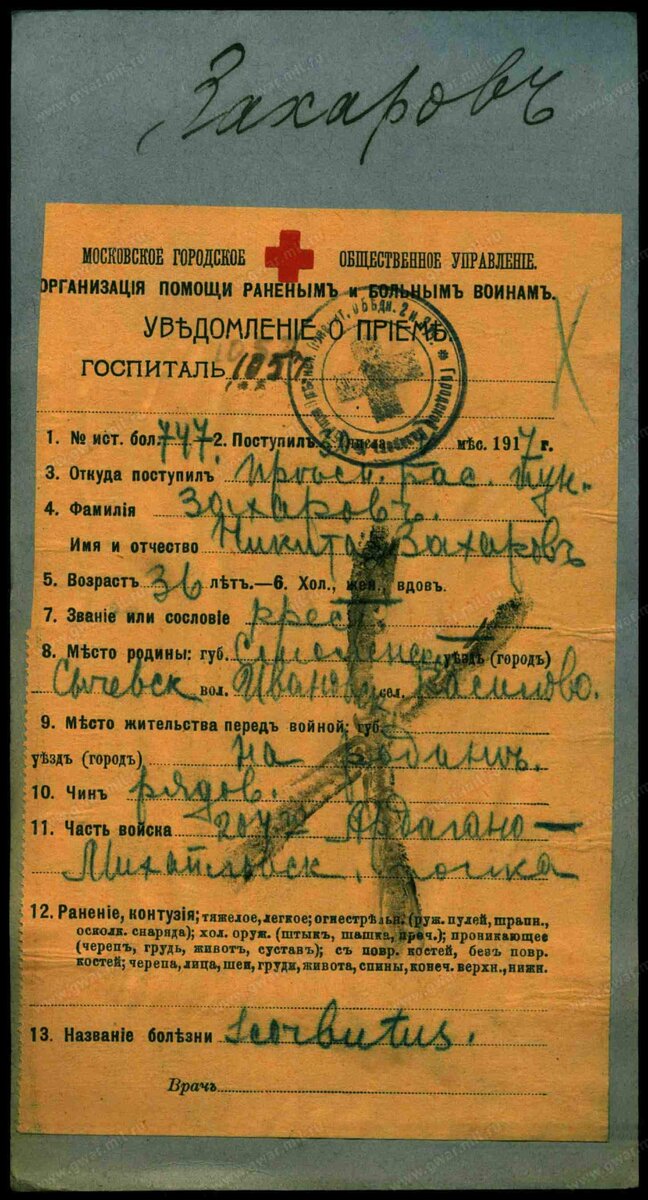 Захаровъ
МОСКОВСКОЕ ГОРОДСКОЕ ОБЩЕСТВЕННОЕ УПРАВЛЕНІЕ.
ОРГАНИЗАЦІЯ ПОМОЩИ РАНЕНЫМЪ и БОЛЬНЫМЪ ВОИНАМЪ.
УВѢДОМЛЕНІЕ О ПРІЕМѢ
ГОСПИТАЛЬ 1057
1. № ист. бол. 747. 2. Поступилъ мѣс. 1917 г.
3. Откуда поступилъ рас. пун.
4. Фамилія Захаровъ.
Имя и отчество Никита Захаровъ
5. Возрастъ 36 лѣтъ.—6. Хол., жен., вдов.
7. Званіе или сословіе крест.
8. Мѣсто родины: губ. Смоленск уѣздъ (городъ)
Сычевск вол. Иванов сел.
9. Мѣсто жительства передъ войной: губ.
уѣздъ (городъ) на родинѣ.
10. Чин рядов.
11. Часть войска Ардагано-
Михайловск. полка
12. Раненіе, контузія; тяжелое, легкое; огнестрѣльн. (руж. пулей, шрапн.,
осколк. снаряда); хол. оруж. (штык, шашка, проч.); проникающее
(черепъ, грудь, животъ, сустав); съ повр. костей, безъ повр.
костей; черепа, лица, шеи, груди, живота, спины, конеч. верхн., нижн.
13. Названіе болѣзни Scorbutus.
Врачъ
www.gwar.mil.ru